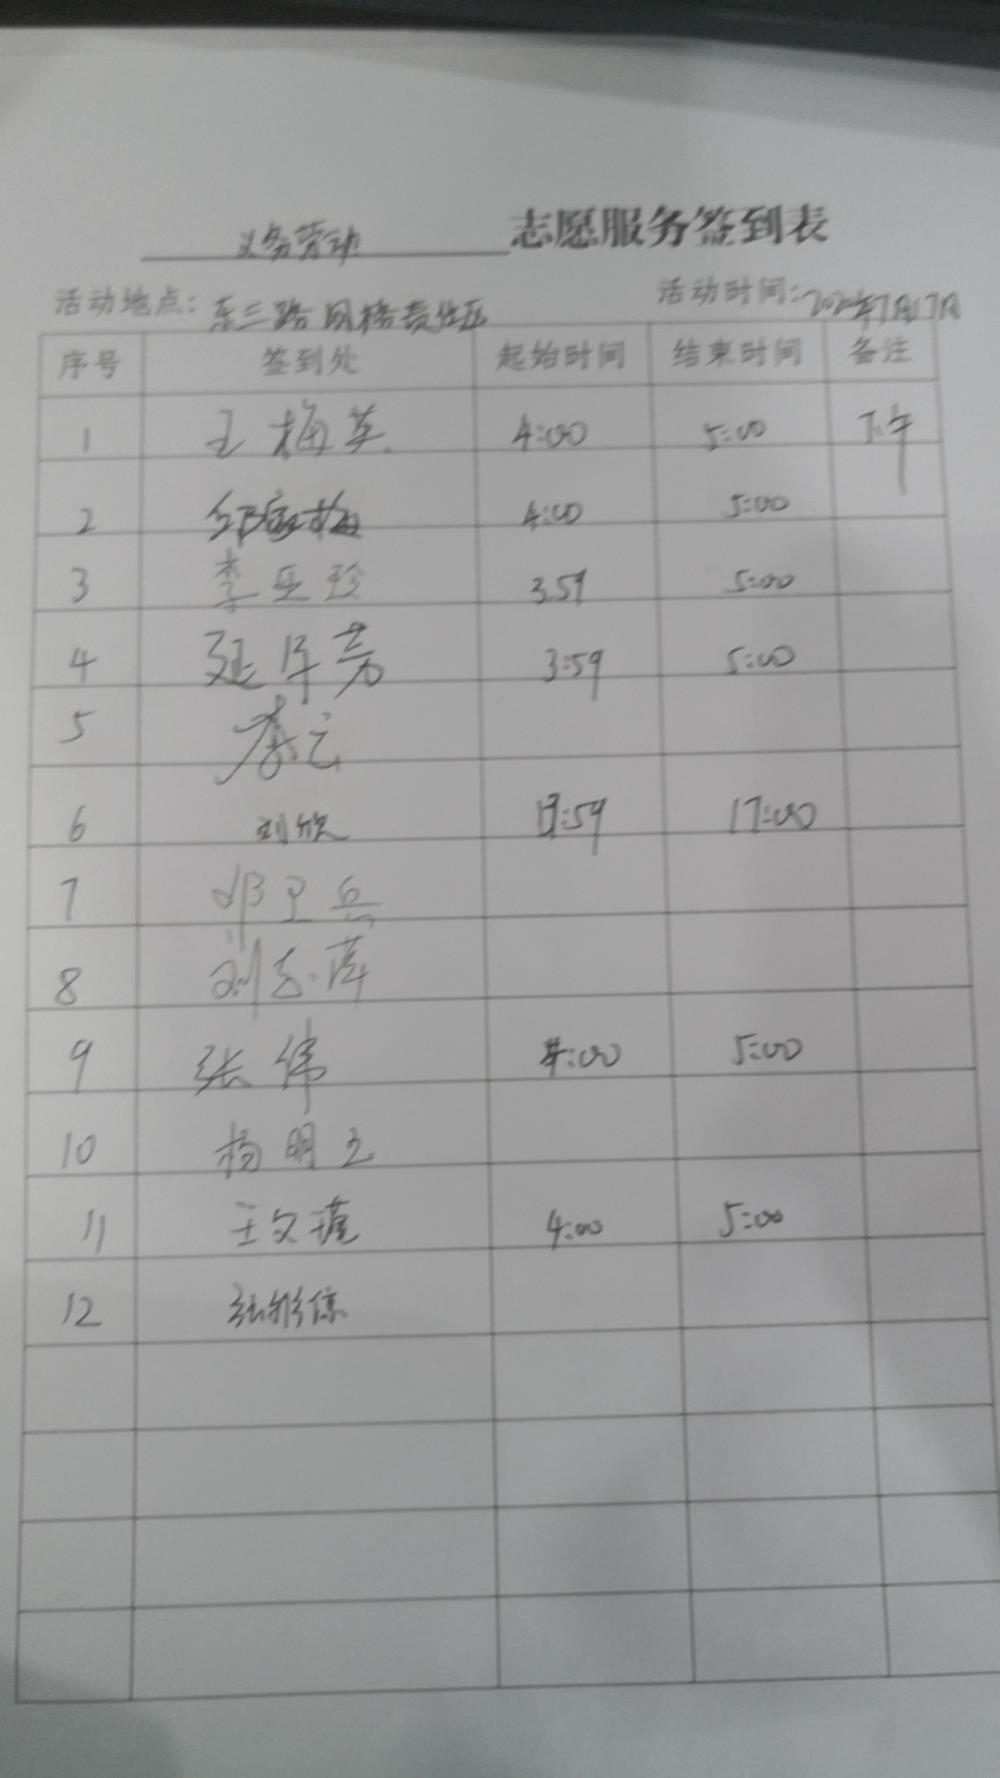 义务劳动 志愿服务签到表
活动地点: 东三路网格责任区 活动时间: 7月17日
序号 签到处 起始时间 结束时间 备注
1 王梅英 4:00 5:00 下午
2 4:00 5:00
3 李亚珍 3:59 5:00
4 3:59 5:00
5
6 刘欣 17:00
7 邵卫兵
8
9 张伟 4:00 5:00
10 杨明
11 王文瑾 4:00 5:00
12